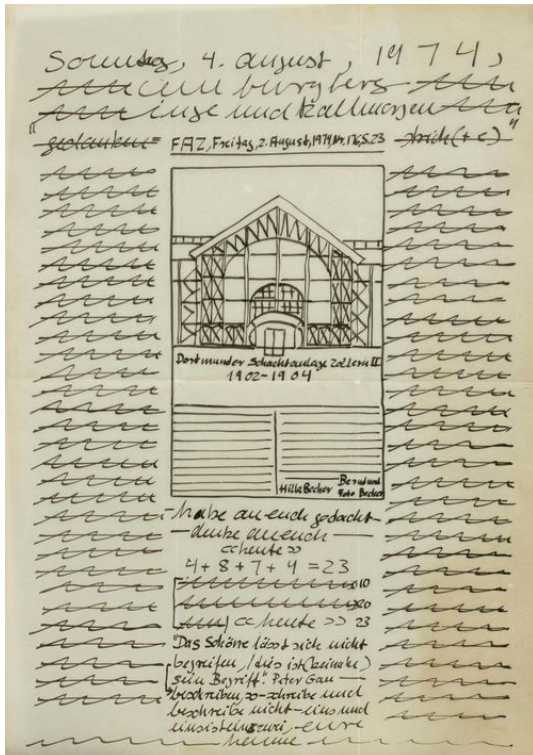 Sonntag, 4. august, 1974,
am burgberg
inge und
"gedanken=
FAZ, Freitag, 2. August, 1974, Nr. 176, S. 23
strich (+ e)"
Dortmunder Schachtanlage Zollern II
1902-1904
Hilla Becher
Bernd und
Foto Becher
habe an euch gedacht
denke an euch
<<heute>>
4+8+7+4=23
10
20
<<heute>> 23
"Das Schöne lässt sich nicht
begreifen, / dies ist (beinahe)
sein Begriff". Peter Gan
beschreiben schreibe und
beschreibe nicht - eins und
eins ist eure
hanne